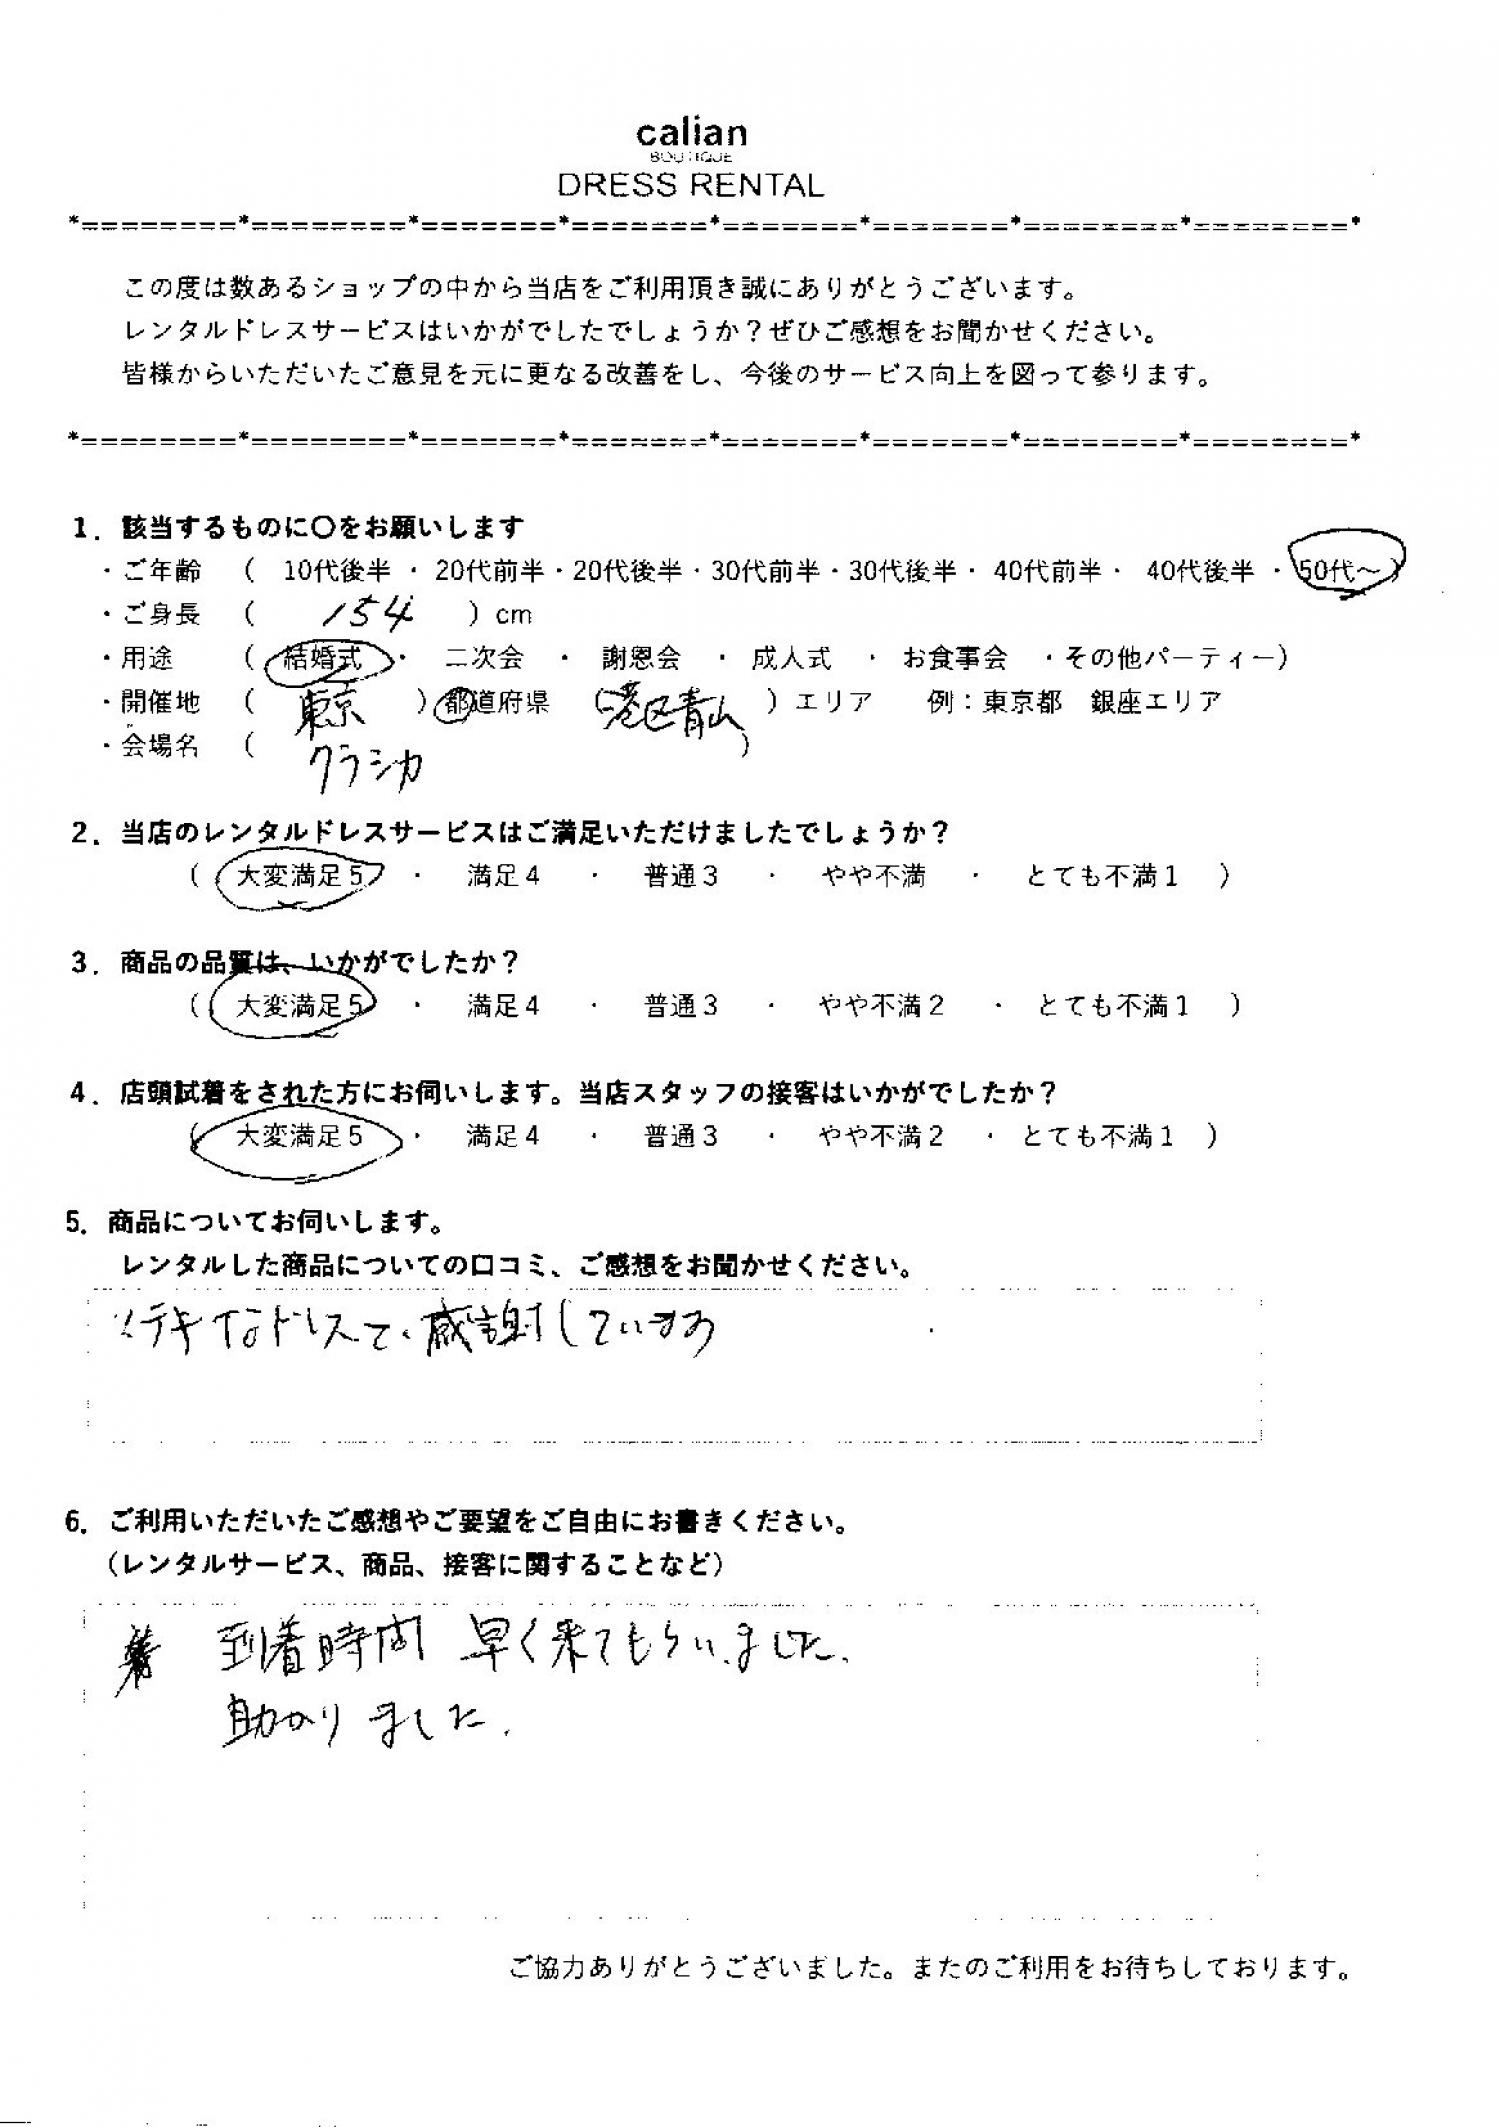 calian
BOUTIQUE
DRESS RENTAL
*========*========*=======*=======*=======*=======*========*========*
この度は数あるショップの中から当店をご利用頂き誠にありがとうございます。
レンタルドレスサービスはいかがでしたでしょうか？ぜひご感想をお聞かせください。
皆様からいただいたご意見を元に更なる改善をし、今後のサービス向上を図って参ります。
*========*========*=======*=======*=======*=======*========*========*
1．該当するものに〇をお願いします
・ご年齢　（　10代後半 ・ 20代前半・20代後半・30代前半・30代後半・ 40代前半・ 40代後半 ・ 50代～）
・ご身長　（　154　）cm
・用途　（ 結婚式 ・ 二次会 ・ 謝恩会 ・ 成人式 ・ お食事会 ・その他パーティー）
・開催地　（　東京　）都道府県　（港区青山　）エリア　例：東京都　銀座エリア
・会場名　（　クラシカ　）
2．当店のレンタルドレスサービスはご満足いただけましたでしょうか？
（ 大変満足5 ・ 満足4 ・ 普通3 ・ やや不満 ・ とても不満1 ）
3．商品の品質は、いかがでしたか？
（ 大変満足5 ・ 満足4 ・ 普通3 ・ やや不満2 ・ とても不満1 ）
4．店頭試着をされた方にお伺いします。当店スタッフの接客はいかがでしたか？
（ 大変満足5 ・ 満足4 ・ 普通3 ・ やや不満2 ・ とても不満1 ）
5．商品についてお伺いします。
レンタルした商品についての口コミ、ご感想をお聞かせください。
ステキなドレスで、感謝しています
6．ご利用いただいたご感想やご要望をご自由にお書きください。
（レンタルサービス、商品、接客に関することなど）
到着時間 早く来てもらいました．
助かりました．
ご協力ありがとうございました。またのご利用をお待ちしております。